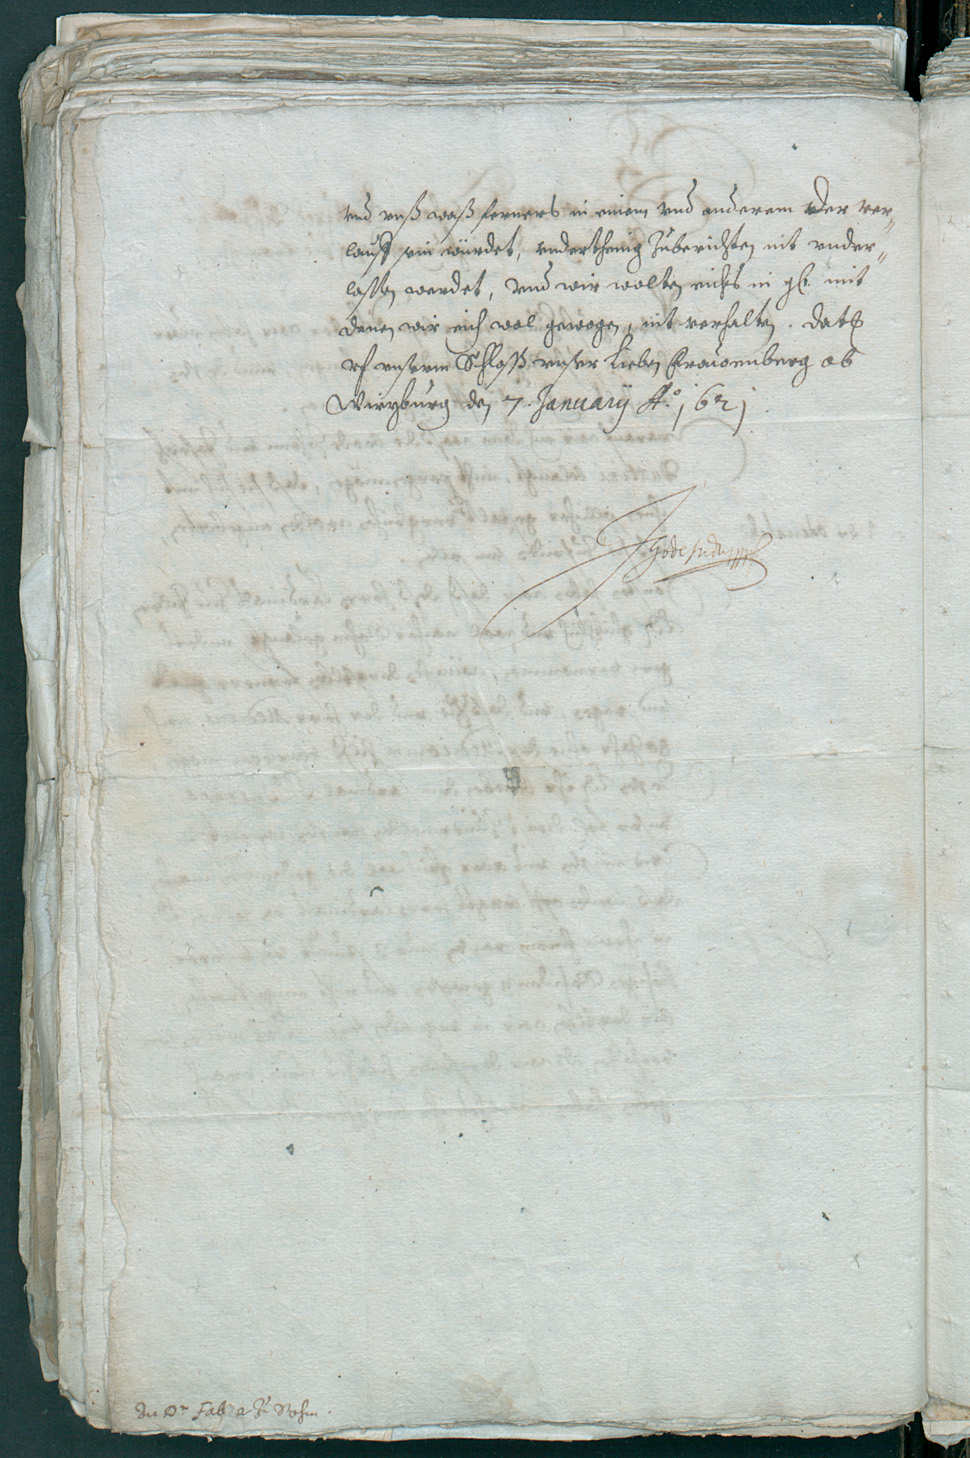 vnd vnß waß ferners in einem vnd anderem der ver„
lauff sein würdet, vnderthenig Zuberichten nit vnder„
lassen werdet, Vnd wir wolten euchs in gd. mit
denen wir euch wol gewogen, nit verhalten. Datū
vf vnserm Schloß vnser Lieben Frauenberg ob
Würzburg den 7. January A.º 1621
An Dr. Fab